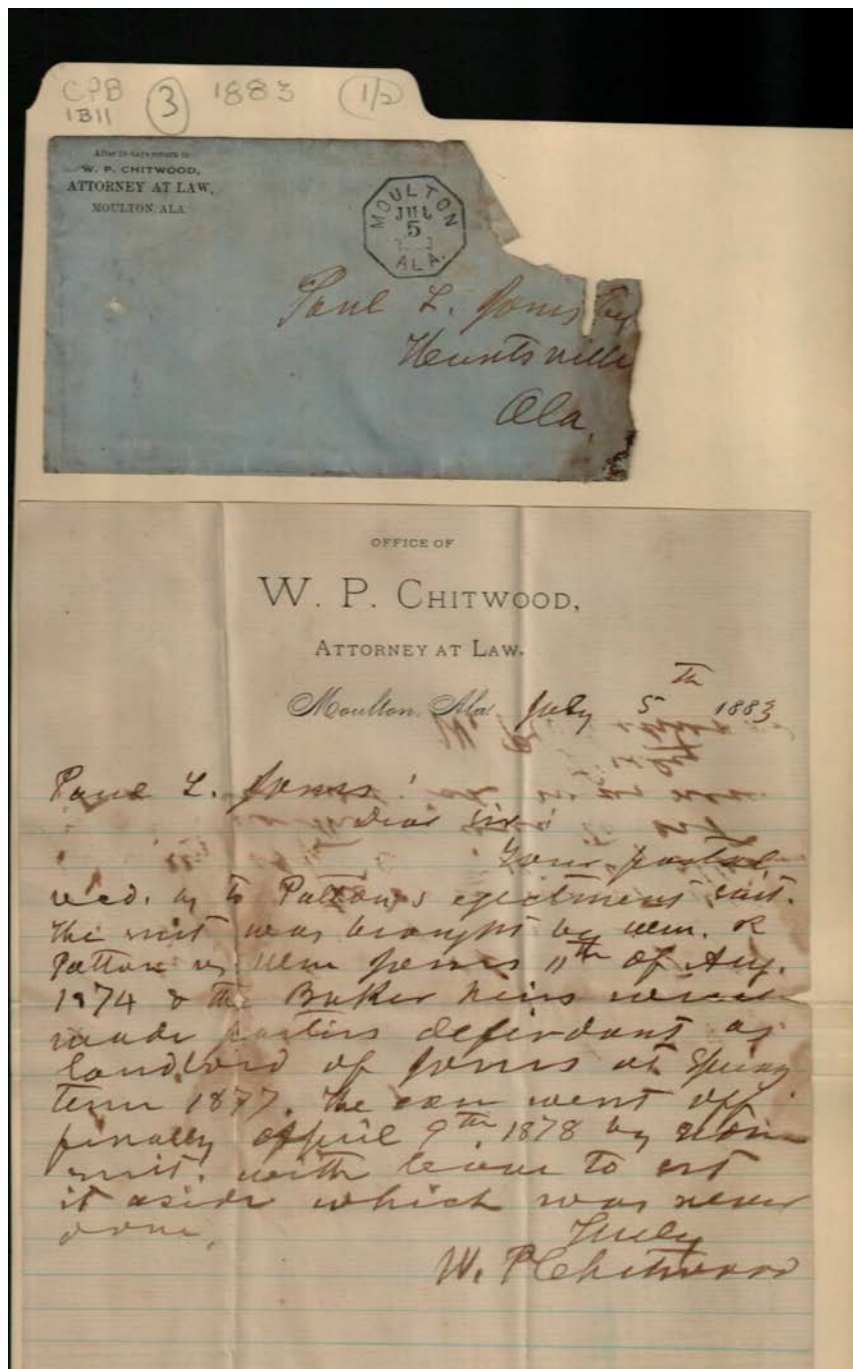 CPB 3 1883 1/2
1B11
After 10 days return to
W. P. CHITWOOD,
ATTORNEY AT LAW,
MOULTON, ALA
MOULTON
JUL
5
ALA.
Paul L. Jones Esq
Huntsville
Ala.
OFFICE OF
W. P. CHITWOOD,
ATTORNEY AT LAW.
Moulton, Ala. July 5th 1883
Paul L. Jones!
Dear Sir!
Your postal
recd. as to Patton's ejectment suit.
The suit was brought by Wm. R
Patton vs Wm Jones 11th of Aug.
1874 & the Baker heirs were
made parties defendant as
landlord of Jones at Spring
term 1877. The case went off
finally April 9th 1878 by non
suit. with leave to set
it aside which was never
done.
Truly
W. P Chitwood